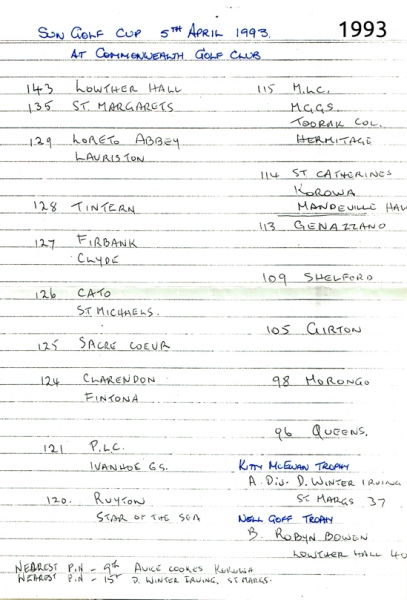 1993
SUN GOLF CUP 5TH APRIL 1993.
AT COMMONWEALTH GOLF CLUB
143 LOWTHER HALL
135 ST. MARGARETS
129 LORETO ABBEY
LAURISTON
128 TINTERN
127 FIRBANK
CLYDE
126 CATO
ST MICHAELS.
125 SACRE COEUR
124 CLARENDON
FINTONA
121 P.L.C.
IVANHOE GS.
120. RUYTON
STAR OF THE SEA
115 M.L.C.
M.G.G.S.
TOORAK COL.
HERMITAGE
114 ST CATHERINES
KOROWA
MANDEVILLE HALL
113 GENAZZANO
109 SHELFORD
105 GIRTON
98 MORONGO
96 QUEENS.
KITTY MCEWAN TROPHY
A. DIV. D. WINTER IRVING
ST MARGS 37
NELL GOFF TROPHY
B. ROBYN BOWEN
LOWTHER HALL 40
NEAREST PIN - 9th ALICE COOKES KOROWA
NEAREST PIN - 15th D. WINTER IRVING. ST MARGS.